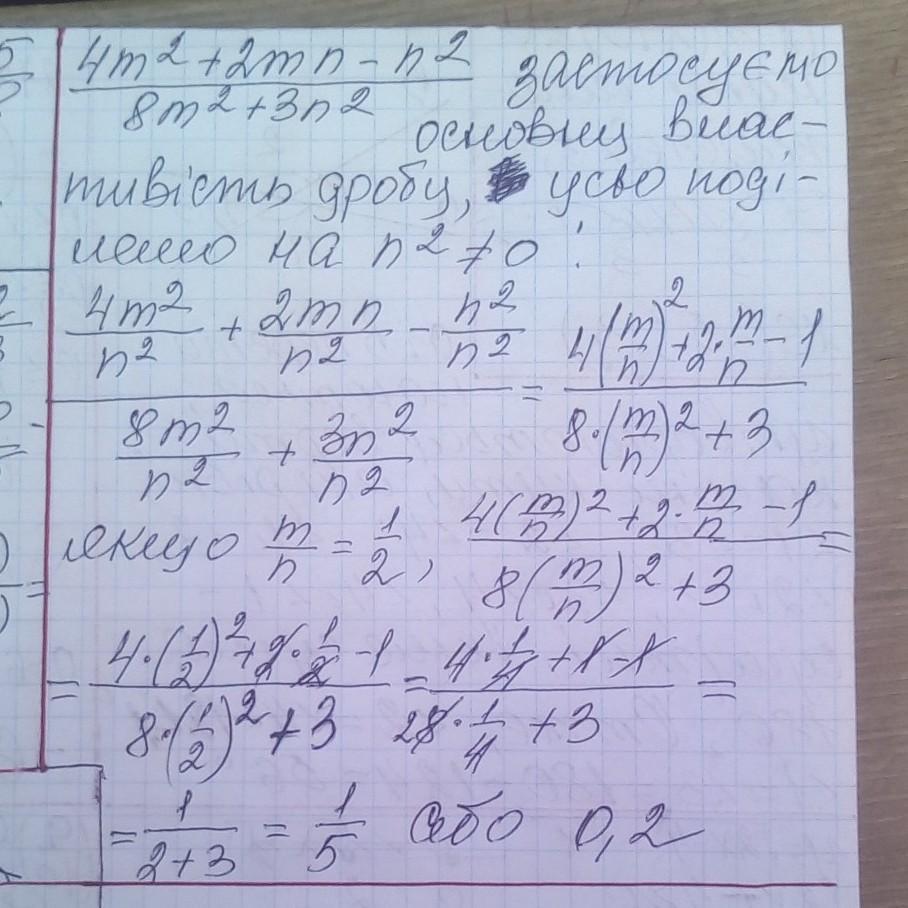 (4m²+2mn-n²)/(8m²+3n²) застосуємо
основну влас-
тивість дробу, усьо поді-
лемо на n²≠0 :
(4m²/n² + 2mn/n² - n²/n²)/(8m²/n² + 3n²/n²) = (4(m/n)²+2·m/n-1)/(8·(m/n)²+3)
якщо m/n = 1/2, (4(m/n)²+2·m/n-1)/(8(m/n)²+3) =
= (4·(1/2)²+2·1/2-1)/(8·(1/2)²+3) = (4·1/4+1-1)/(28·1/4+3) =
= 1/(2+3) = 1/5 або 0,2